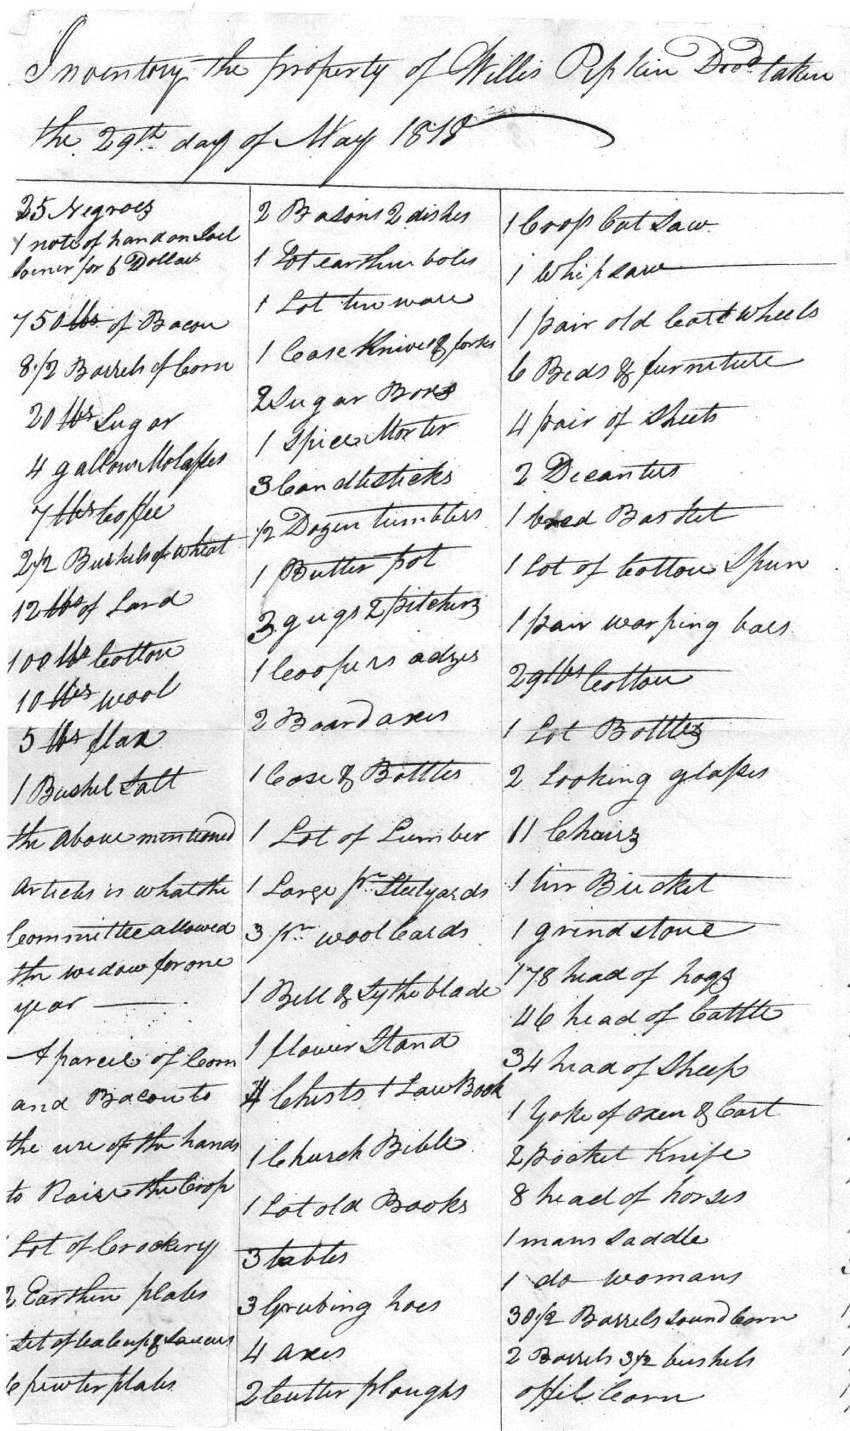 Inventory the property of Willis Pipkin Decd taken
the 29th day of May 1818
25 Negroes
1 note of hand on
for 6 Dollars
750 lbs of Bacon
8 1/2 Barrels of Corn
20 lbs Sugar
4 gallons Molasses
7 lbs Coffee
2 1/2 Bushels of Wheat
12 lbs of Lard
100 lbs Cotton
10 lbs wool
5 lbs flax
1 Bushel Salt
the above mentioned
Articles is what the
Committee allowed
the widow for one
year
A parcel of Corn
and Bacon to
the use of the hands
to Raise the Crop
Lot of Crockery
2 Earthen plates
Set of teacups & Saucers
6 pewter plates
2 Basons 2 dishes
1 Lot earthen boles
1 Lot tin ware
1 Case Knives & forks
2 Sugar Boxs
1 Spice Morter
3 Candlesticks
1/2 Dozen tumblers
1 Butter pot
3 gugs 2 pitchers
1 Coopers adzes
2 Board axes
1 Case & Bottles
1 Lot of Lumber
1 Large pr Steelyards
3 pr wool Cards
1 Bell & Sythe blade
1 flower Stand
4 Chists 1 Law Book
1 Church Bible
1 Lot old Books
3 tables
3 Grubing hoes
4 axes
2 Cutter ploughs
1 Croop Cut Saw
1 Whip saw
1 pair old Cart Wheels
6 Beds & furniture
4 pair of Sheets
2 Decanters
1 Basket
1 Lot of Cotton Spun
1 pair warping bars
29 lbs Cotton
1 Lot Bottles
2 Looking glasses
11 Chairs
1 tin Bucket
1 grind stone
178 head of hogs
46 head of Cattle
34 head of Sheep
1 Yoke of oxen & Cart
2 pocket Knife
8 head of horses
1 mans Saddle
1 do womans
30 1/2 Barrels sound Corn
2 Barrels 3 1/2 bushels
offil Corn